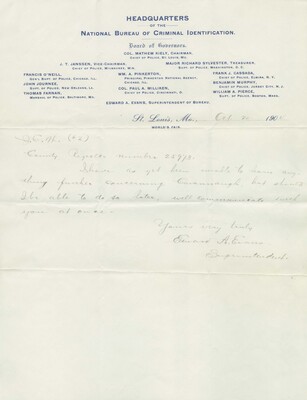 HEADQUARTERS
OF THE
NATIONAL BUREAU OF CRIMINAL IDENTIFICATION.
Board of Governors.
COL. MATHEW KIELY, CHAIRMAN.
CHIEF OF POLICE, ST. LOUIS, MO.
J. T. JANSSEN, VICE-CHAIRMAN,
CHIEF OF POLICE, MILWAUKEE, WIS.
MAJOR RICHARD SYLVESTER, TREASURER,
SUPT. OF POLICE, WASHINGTON, D. C.
FRANCIS O'NEILL,
GEN'L SUPT. OF POLICE, CHICAGO, ILL.
WM. A. PINKERTON,
PRINCIPAL PINKERTON NATIONAL AGENCY,
CHICAGO, ILL.
FRANK J. CASSADA,
CHIEF OF POLICE, ELMIRA, N. Y.
JOHN JOURNEE,
SUPT. OF POLICE, NEW ORLEANS, LA.
COL. PAUL M. MILLIKEN,
CHIEF OF POLICE, CINCINNATI, O.
BENJAMIN MURPHY,
CHIEF OF POLICE, JERSEY CITY, N. J.
THOMAS FARNAN,
MARSHAL OF POLICE, BALTIMORE, MD.
WILLIAM A. PIERCE,
SUPT. OF POLICE, BOSTON, MASS.
EDWARD A. EVANS, SUPERINTENDENT OF BUREAU.
St. Louis, Mo., Oct 190
WORLD'S FAIR.
County number
I have as yet been unable to learn any
thing further concerning but should
I be able to do so later, will communicate with
you at once.
Yours very truly
Edward A. Evans
Superintendent.